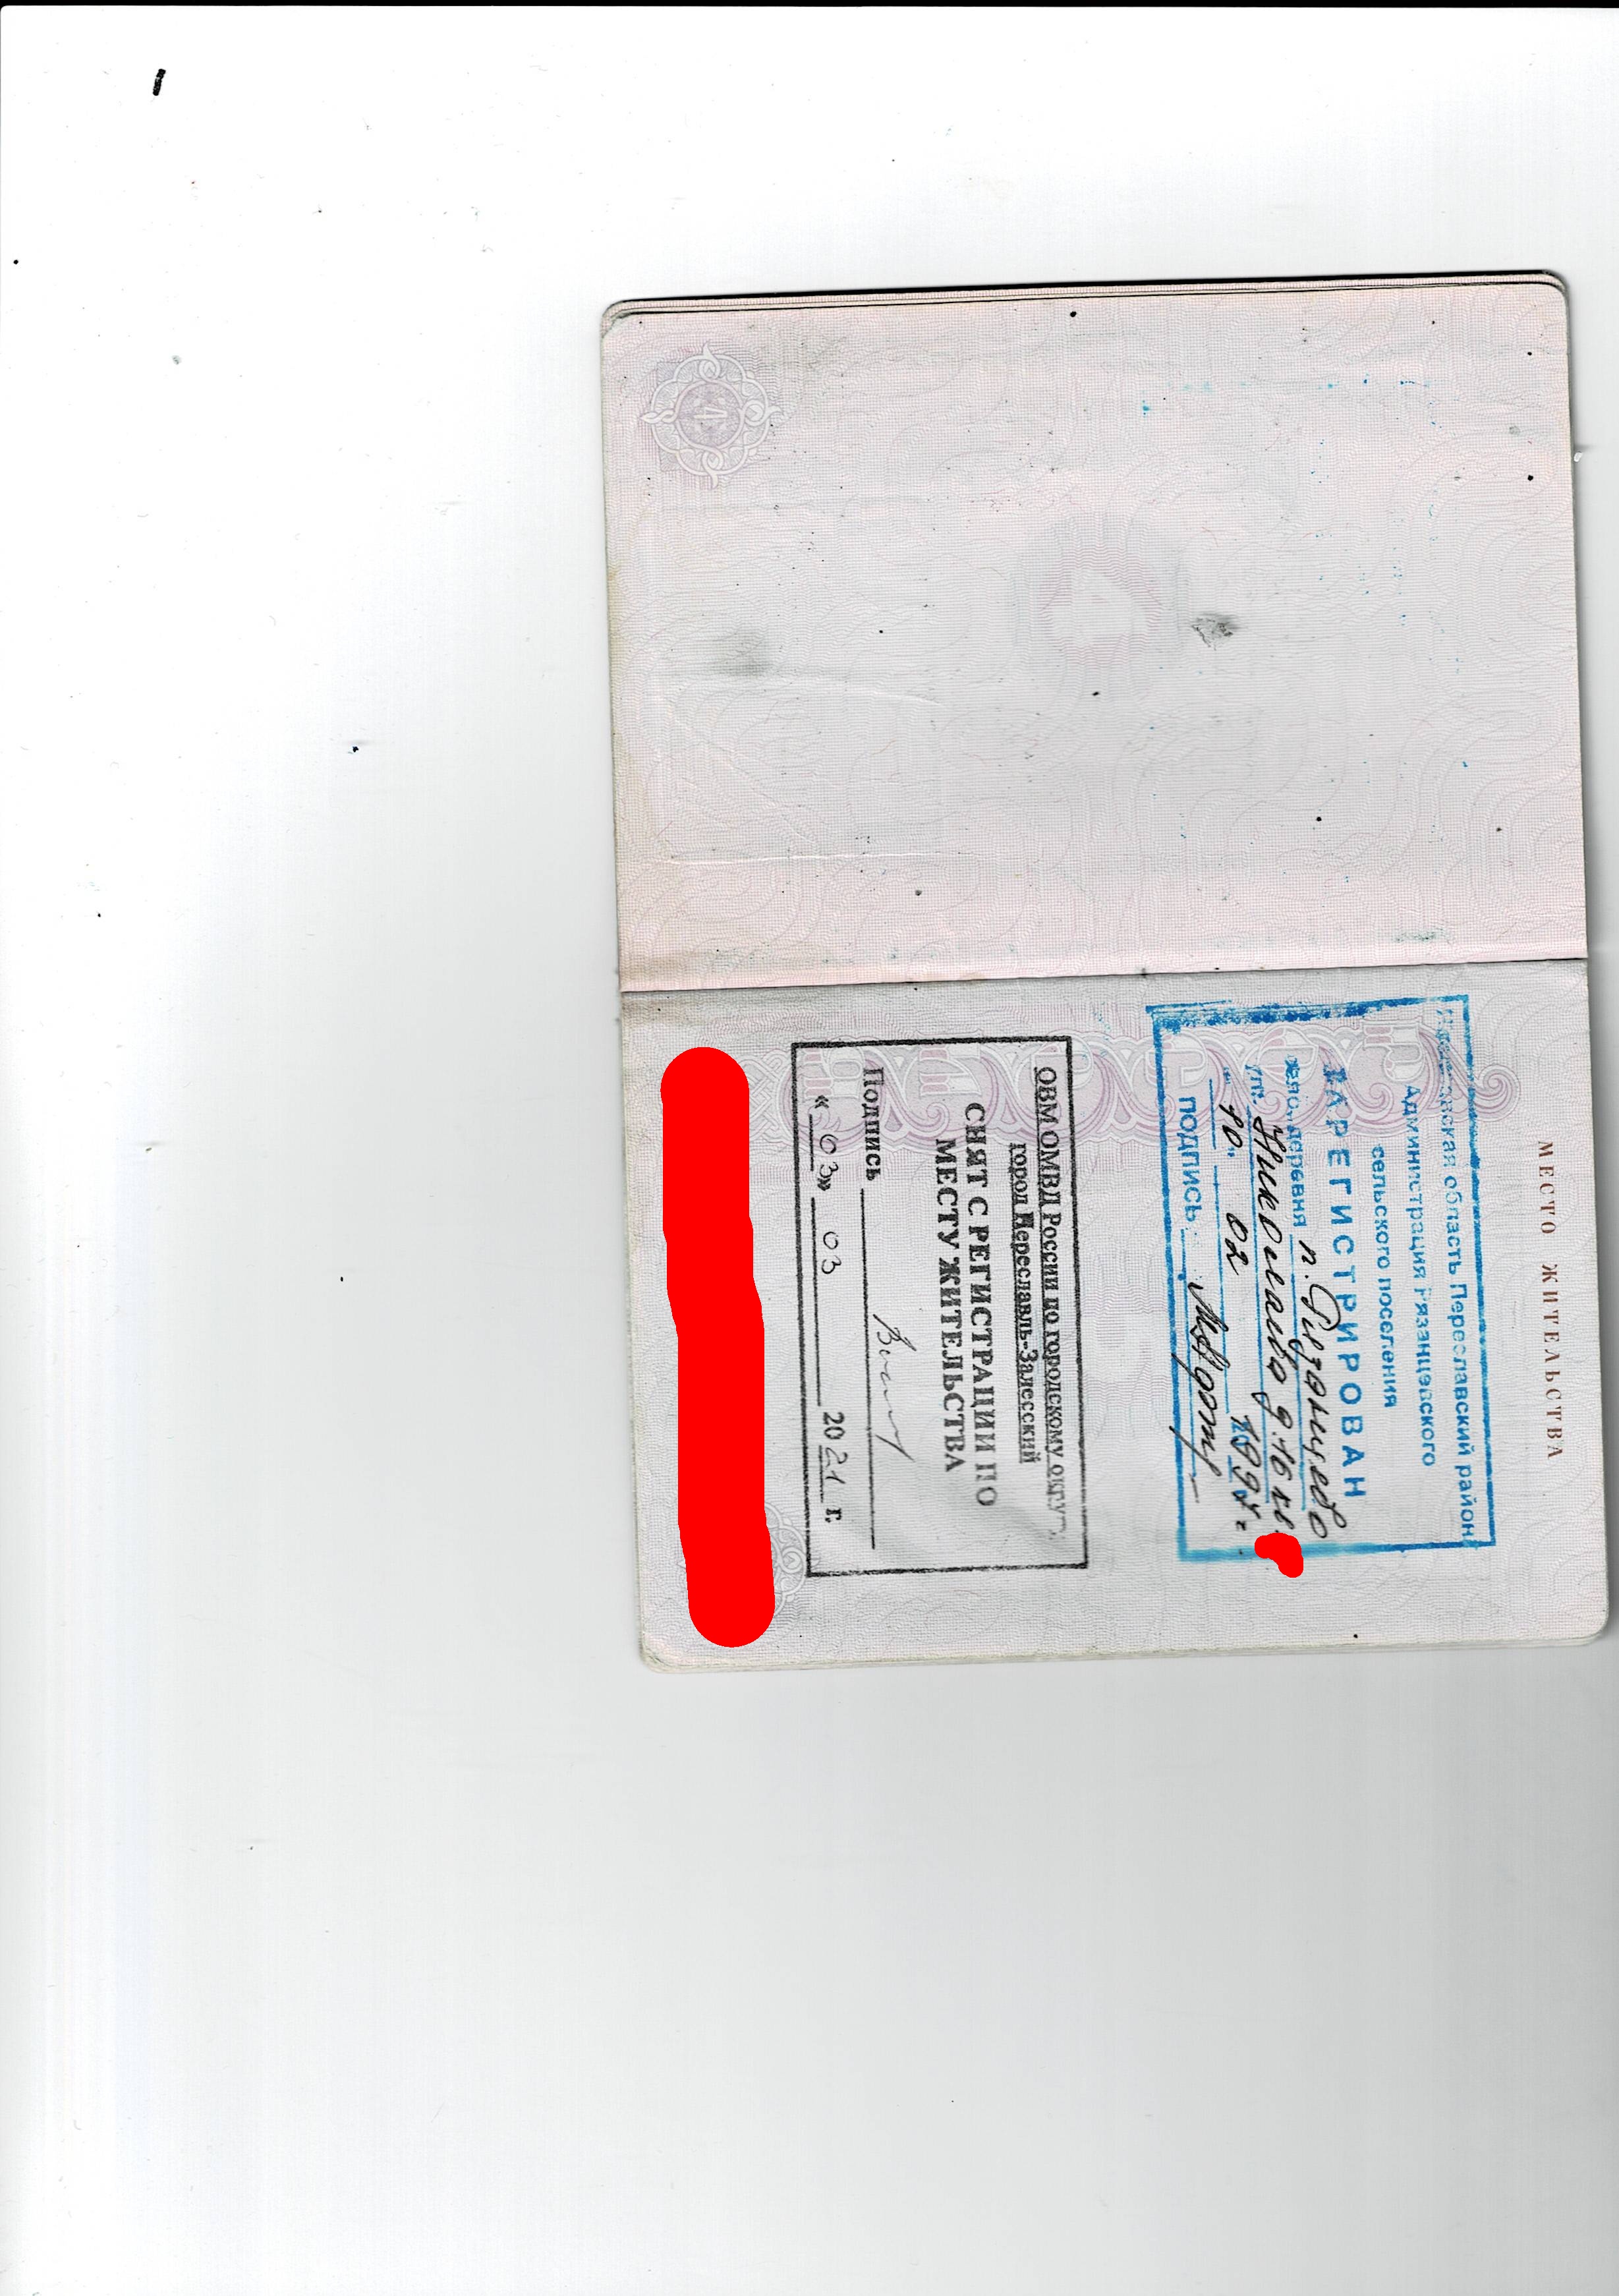 МЕСТО ЖИТЕЛЬСТВА
Ярославская область Переславский район
Администрация Рязанцевского
сельского поселения
ЗАРЕГИСТРИРОВАН
село, деревня п. Рязанцево
ул. Николаева д. 16 кв.
"10" 02 199
ПОДПИСЬ
ОВМ ОМВД России по городскому округу
город Переславль-Залесский
СНЯТ С РЕГИСТРАЦИИ ПО
МЕСТУ ЖИТЕЛЬСТВА
Подпись
« 03» 03 2021 г.